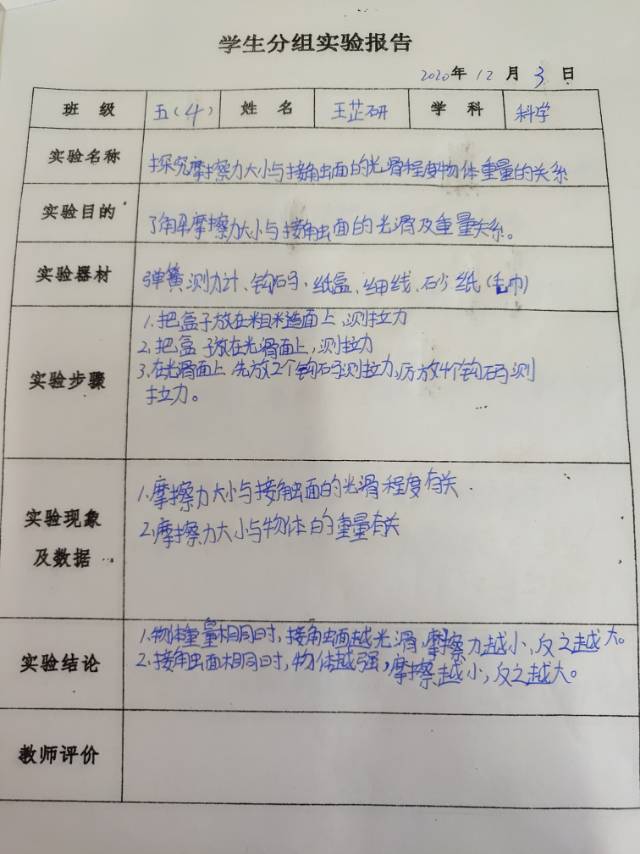 学生分组实验报告
2020年12月3日
班 级 五(4) 姓 名 王芷研 学 科 科学
实验名称 探究摩擦力大小与接触面的光滑程度物体重量的关系
实验目的 了解摩擦力大小与接触面的光滑及重量关系。
实验器材 弹簧测力计、钩码、纸盒、细线、砂纸(毛巾)
实验步骤
1.把盒子放在粗糙面上,测拉力
2.把盒子放在光滑面上,测拉力
3.在光滑面上先放2个钩码测拉力,历放4个钩码测
拉力。
实验现象
及数据
1.摩擦力大小与接触面的光滑程度有关.
2.摩擦力大小与物体的重量有关
实验结论
1.物体重量相同时,接触面越光滑,摩擦力越小、反之越大。
2.接触面相同时,物体越强,摩擦越小,反之越大。
教师评价